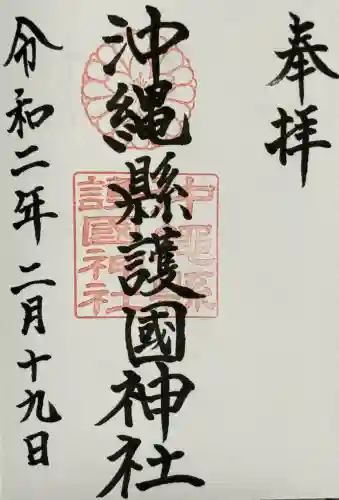 奉拝
沖縄縣護國神社
沖縄縣
護國神社
令和二年 二月十九日